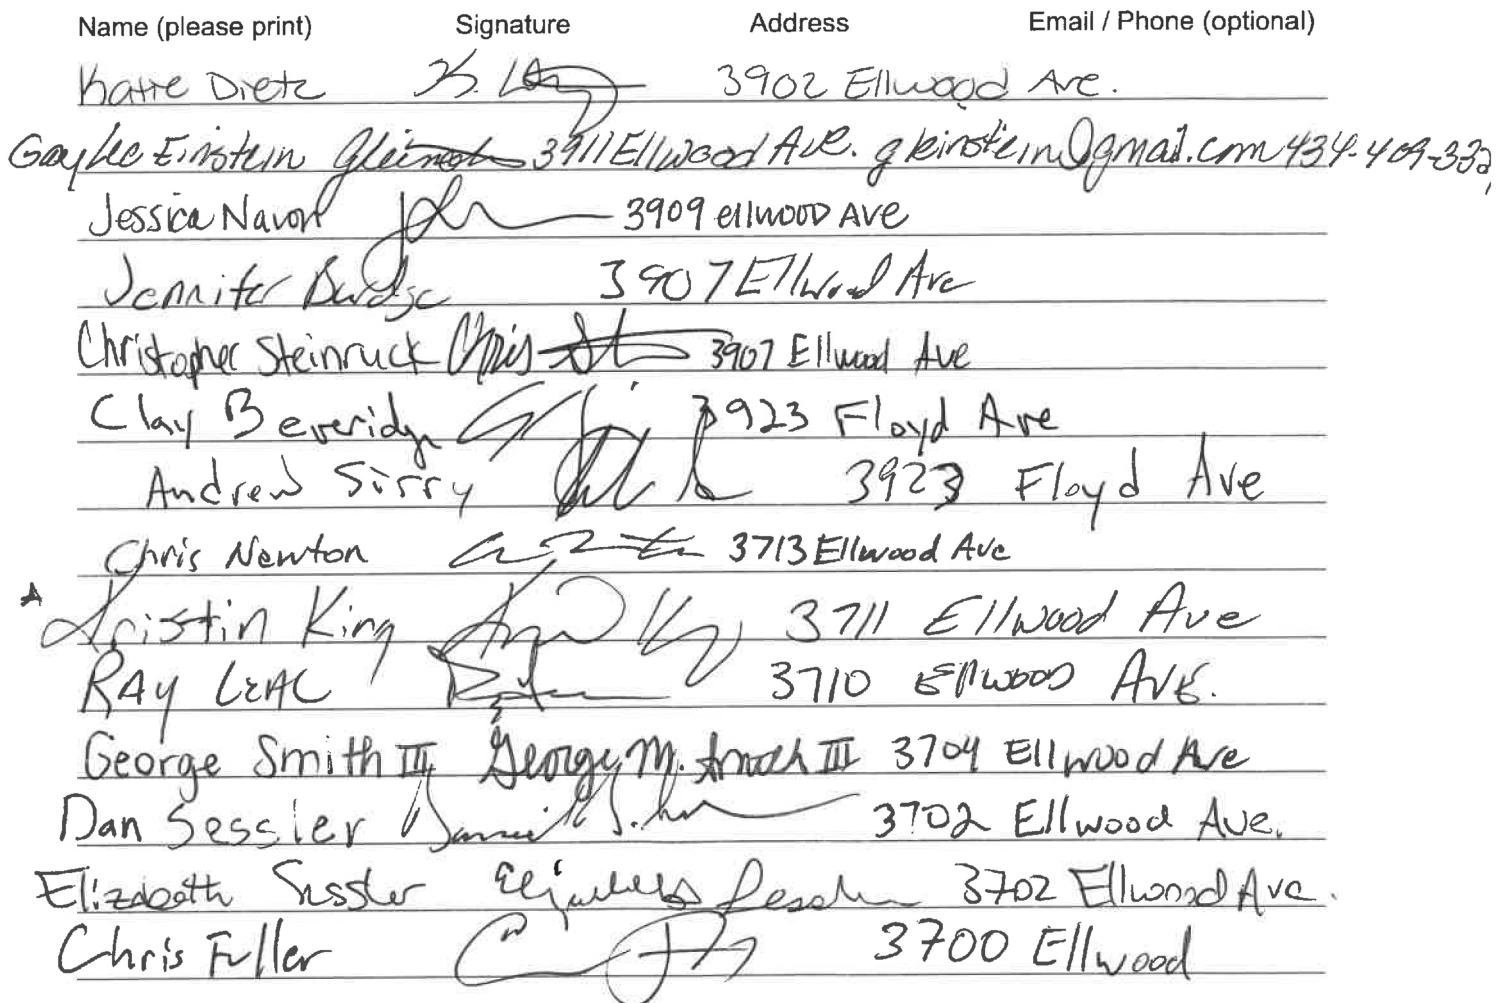 Name (please print) Signature Address Email / Phone (optional)
Katie Dietz K. 3902 Ellwood Ave.
Gaylee Einstein 3911 Ellwood Ave. gkeinstein@gmail.com 434-409-332
Jessica Navon 3909 Ellwood Ave
Jennifer Burdge 3907 Ellwood Ave
Christopher Steinruck Chris St 3907 Ellwood Ave
Clay Beveridge 3923 Floyd Ave
Andrew Sirry 3923 Floyd Ave
Chris Newton 3713 Ellwood Ave
Kristin King 3711 Ellwood Ave
RAY LEAL 3710 Ellwood Ave.
George Smith III George M. Smith III 3704 Ellwood Ave
Dan Sessler 3702 Ellwood Ave.
Elizabeth Sessler 3702 Ellwood Ave.
Chris Fuller 3700 Ellwood